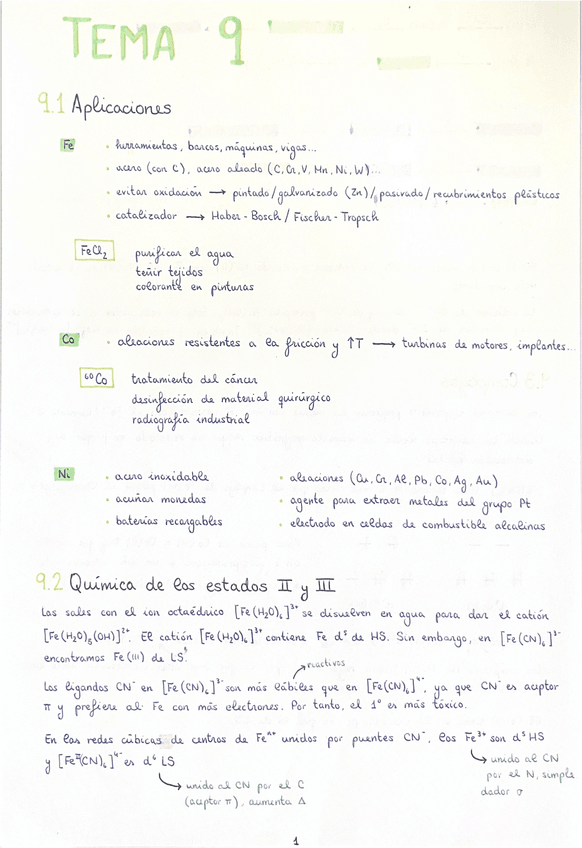 TEMA 9
9.1 Aplicaciones
Fe
· herramientas, barcos, máquinas, vigas...
· acero (con C), acero aleado (C, Cr, V, Mn, Ni, W)...
· evitar oxidación → pintado/galvanizado (Zn)/pasivado/recubrimientos plásticos
· catalizador → Haber-Bosch / Fischer-Tropsch
FeCl₂
purificar el agua
teñir tejidos
colorante en pinturas
Co
· aleaciones resistentes a la fricción y ↑T → turbinas de motores, implantes...
⁶⁰Co
tratamiento del cáncer
desinfección de material quirúrgico
radiografía industrial
Ni
· acero inoxidable
· acuñar monedas
· baterías recargables
· aleaciones (Cu, Cr, Al, Pb, Co, Ag, Au)
· agente para extraer metales del grupo Pt
· electrodo en celdas de combustible alcalinas
9.2 Química de los estados II y III
Las sales con el ion octaédrico [Fe(H₂O)₆]³⁺ se disuelven en agua para dar el catión
[Fe(H₂O)₅(OH)]²⁺. El catión [Fe(H₂O)₆]³⁺ contiene Fe d⁵ de HS. Sin embargo, en [Fe(CN)₆]³⁻
encontramos Fe(III) de LS.
→ reactivos
Los ligandos CN⁻ en [Fe(CN)₆]³⁻ son más lábiles que en [Fe(CN)₆]⁴⁻, ya que CN⁻ es aceptor
π y prefiere al Fe con más electrones. Por tanto, el 1º es más tóxico.
En las redes cúbicas de centros de Feⁿ⁺ unidos por puentes CN⁻, los Fe³⁺ son d⁵ HS
y [Feᴵᴵ(CN)₆]⁴⁻ es d⁶ LS
→ unido al CN por el C
(aceptor π), aumenta Δ
→ unido al CN
por el N, simple
dador σ
1